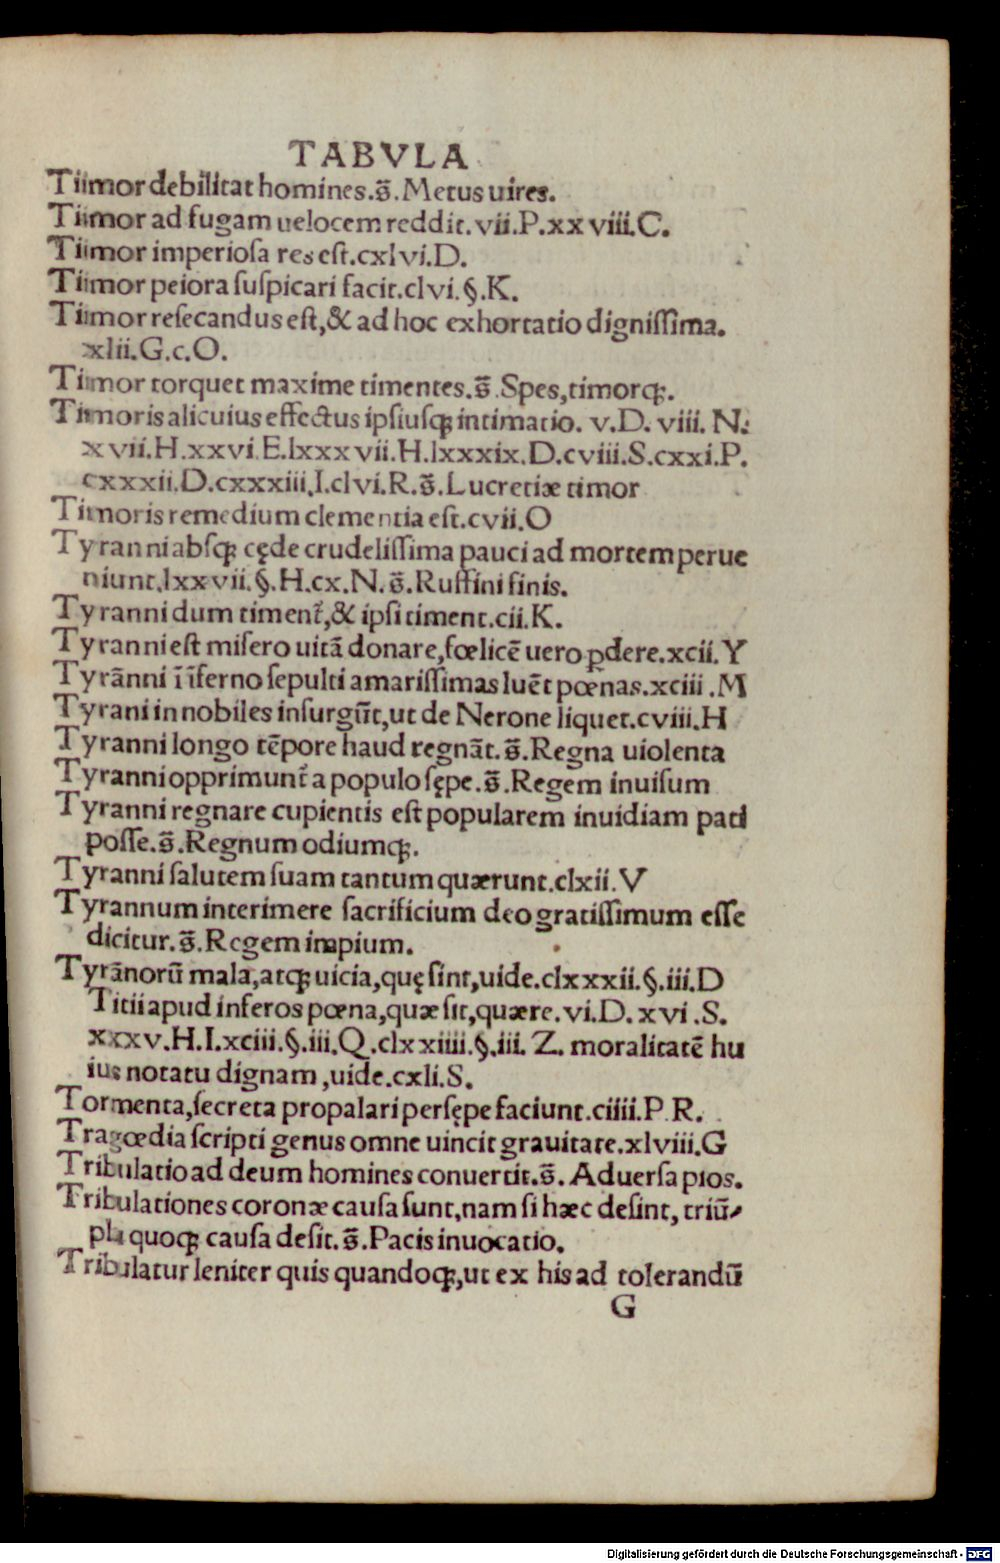 TABVLA
Tiimor debilitat homines.s̄.Metus uires.
Tiimor ad fugam uelocem reddit.vii.P.xxviii.C.
Tiimor imperiosa res est.cxlvi.D.
Tiimor peiora suspicari facit.clvi.§.K.
Tiimor resecandus est,& ad hoc exhortatio dignissima.
xlii.G.c.O.
Tiimor torquet maxime timentes.s̄.Spes,timorꝙ.
Timoris alicuius effectus ipsiusꝙ intimatio. v.D. viii. N.
xvii.H.xxvi.E.lxxxvii.H.lxxxix.D.cviii.S.cxxi.P.
cxxxii.D.cxxxiii.I.clvi.R.s̄.Lucretiæ timor
Timoris remedium clementia est.cvii.O
Tyranni absꝙ cęde crudelissima pauci ad mortem perue
niunt.lxxvii.§.H.cx.N.s̄.Ruffini finis.
Tyranni dum timent̄,& ipsi timent.cii.K.
Tyranni est misero uitā donare,fœlicē uero ꝑdere.xcii.Y
Tyrānni ī īferno sepulti amarissimas luēt pœnas.xciii.M
Tyrani in nobiles insurgūt,ut de Nerone liquet.cviii.H
Tyranni longo tēpore haud regnāt.s̄.Regna uiolenta
Tyranni opprimunt̄ a populo sępe.s̄.Regem inuisum
Tyranni regnare cupientis est popularem inuidiam pati
posse.s̄.Regnum odiumꝙ.
Tyranni salutem suam tantum quærunt.clxii.V
Tyrannum interimere sacrificium deo gratissimum esse
dicitur.s̄.Regem impium.
Tyrānorū mala,atꝙ uicia,quę sint,uide.clxxxii.§.iii.D
Titii apud inferos pœna,quæ sit,quære.vi.D.xvi.S.
xxxv.H.I.xciii.§.iii.Q.clxxiiii.§.iii. Z. moralitatē hu
ius notatu dignam,uide.cxli.S.
Tormenta,secreta propalari persępe faciunt.ciiii.P.R.
Tragœdia scripti genus omne uincit grauitate.xlviii.G
Tribulatio ad deum homines conuertit.s̄. Aduersa pios.
Tribulationes coronæ causa sunt,nam si hæc desint, triū-
phi quoꝙ causa desit.s̄.Pacis inuocatio.
Tribulatur leniter quis quandoꝙ,ut ex his ad tolerandū
G
Digitalisierung gefördert durch die Deutsche Forschungsgemeinschaft - DFG